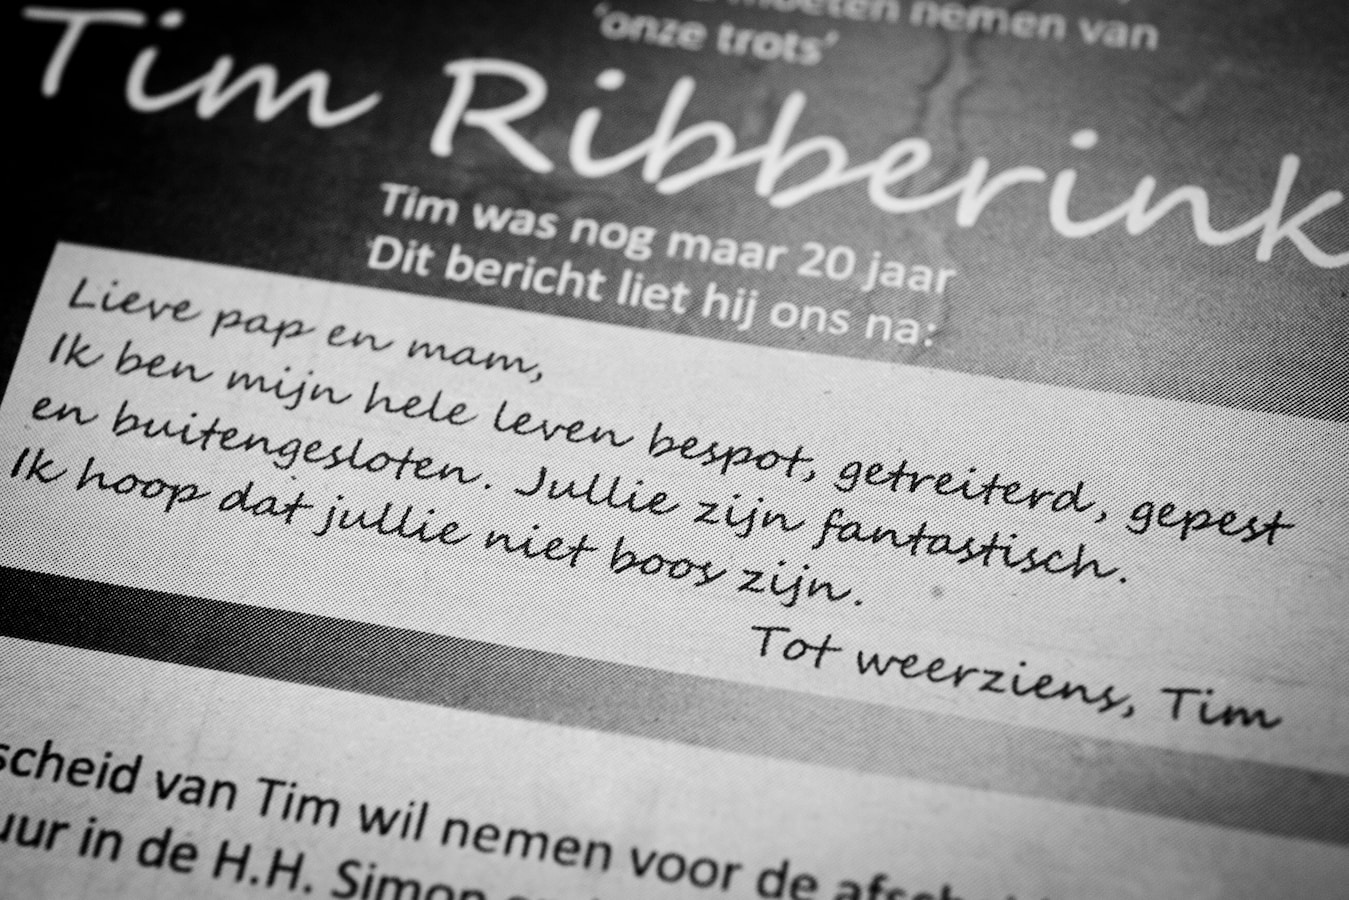 moeten nemen van
'onze trots'
Tim Ribberink
Tim was nog maar 20 jaar
Dit bericht liet hij ons na:
Lieve pap en mam,
Ik ben mijn hele leven bespot, getreiterd, gepest
en buitengesloten. Jullie zijn fantastisch.
Ik hoop dat jullie niet boos zijn.
Tot weerziens, Tim
scheid van Tim wil nemen voor de
uur in de H.H. Simon